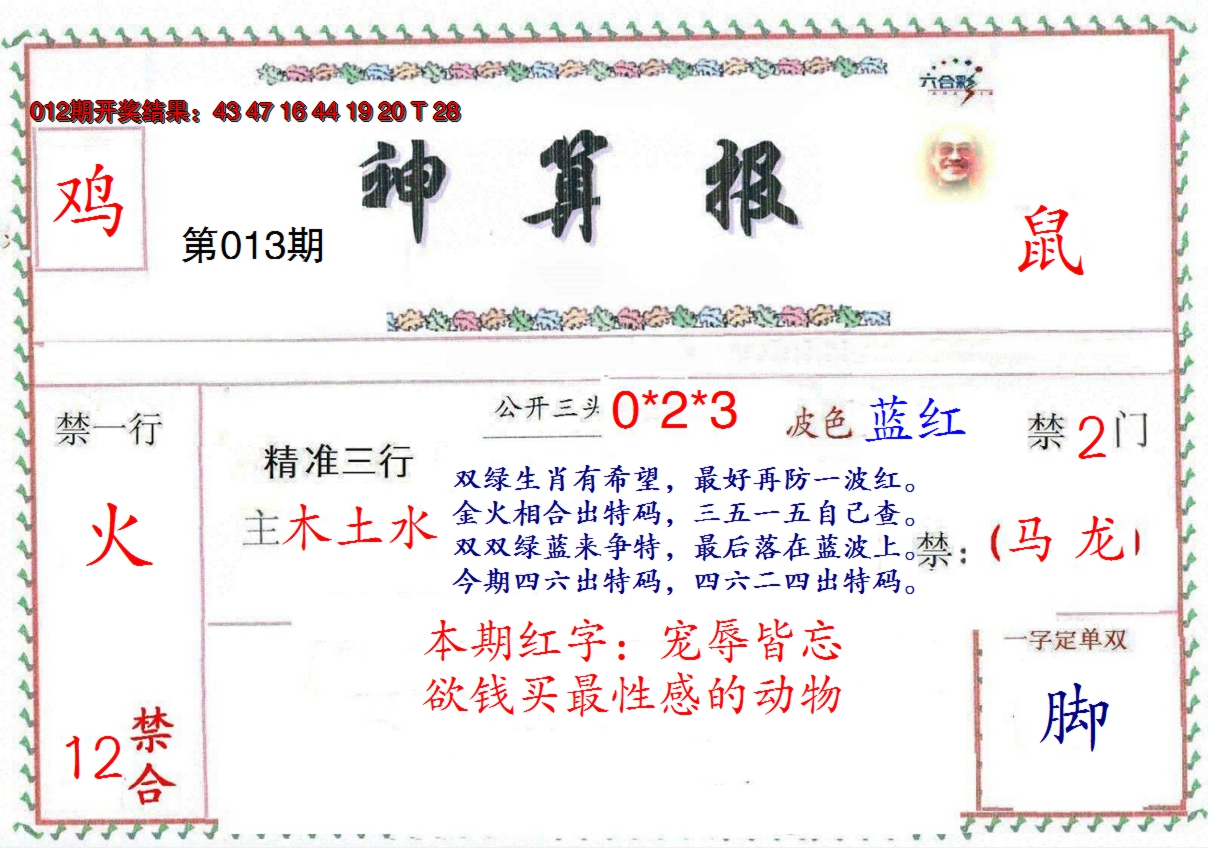 六合彩
012期开奖结果：43 47 16 44 19 20 T 28
神 算 报
鸡
第013期
鼠
公开三头 0*2*3
波色 蓝红
禁一行
火
12 禁合
精准三行
主木土水
双绿生肖有希望，最好再防一波红。
金火相合出特码，三五一五自己查。
双双绿蓝来争特，最后落在蓝波上。
今期四六出特码，四六二四出特码。
禁2门
禁：（马 龙）
本期红字：宠辱皆忘
欲钱买最性感的动物
一字定单双
脚